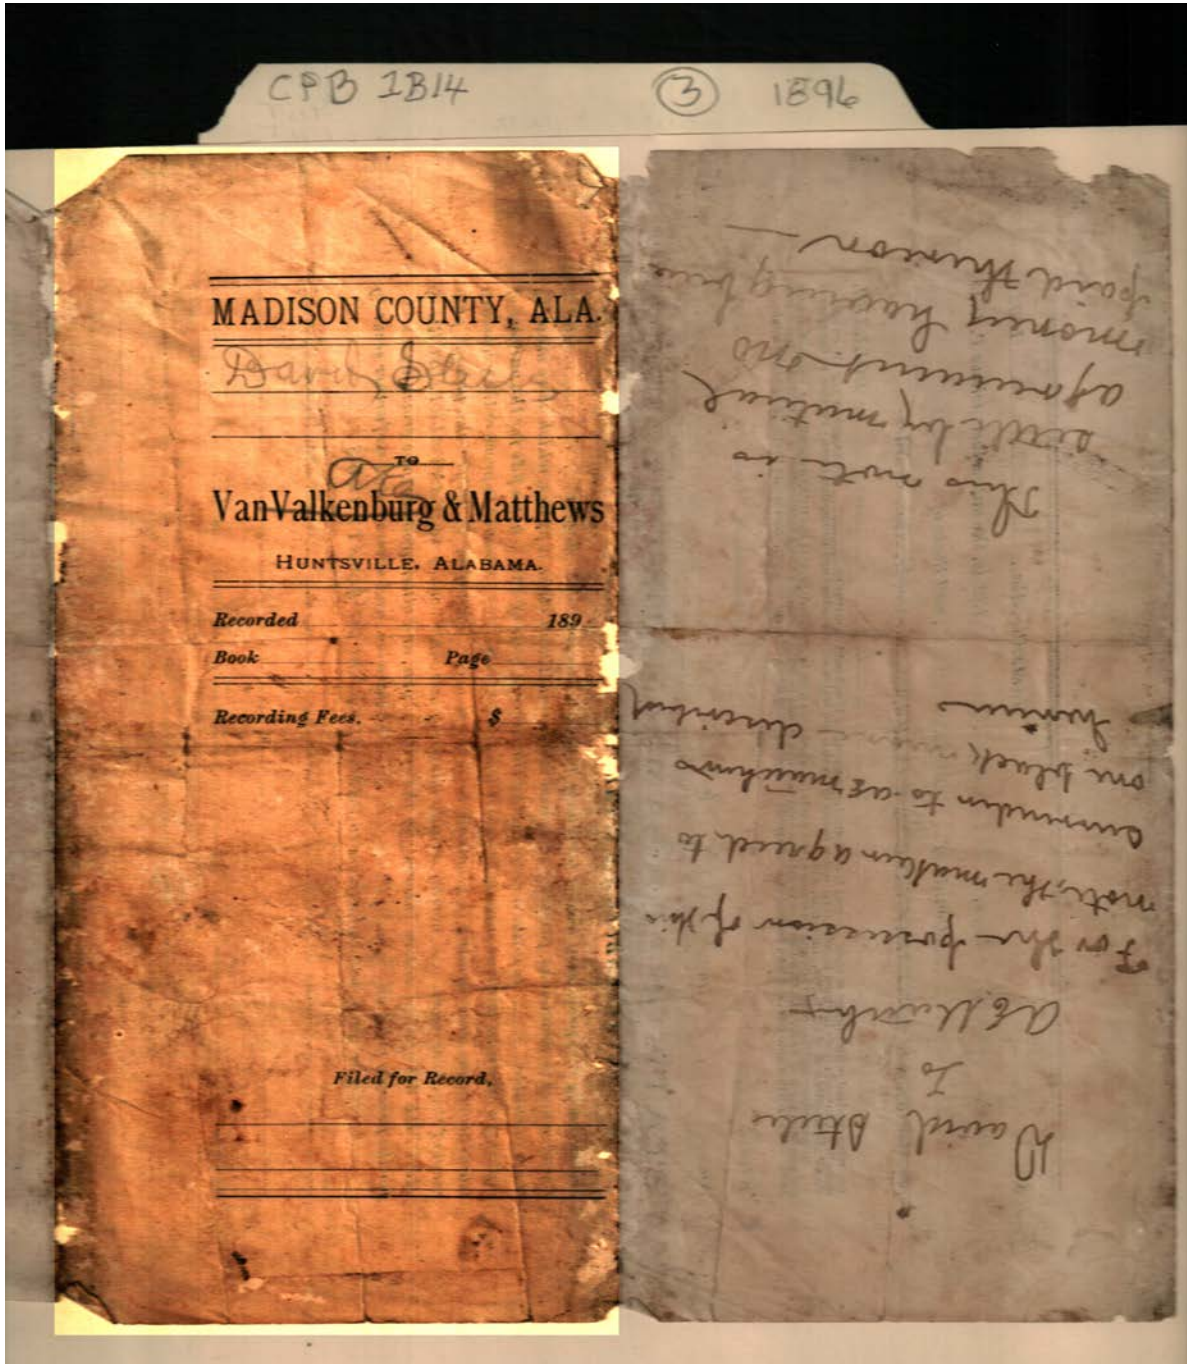 CPB 1B14 3 1896
MADISON COUNTY, ALA.
David Steele
TO
AE
VanValkenburg & Matthews
HUNTSVILLE, ALABAMA.
Recorded 189
Book Page
Recording Fees. $
Filed for Record,
David Steele
To
AE Matthews
For the possession of this
note, the maker agreed to
surrender to AE Matthews
one black mare described
herein
This note is
settle by mutual
agreement no
money having been
paid thereon